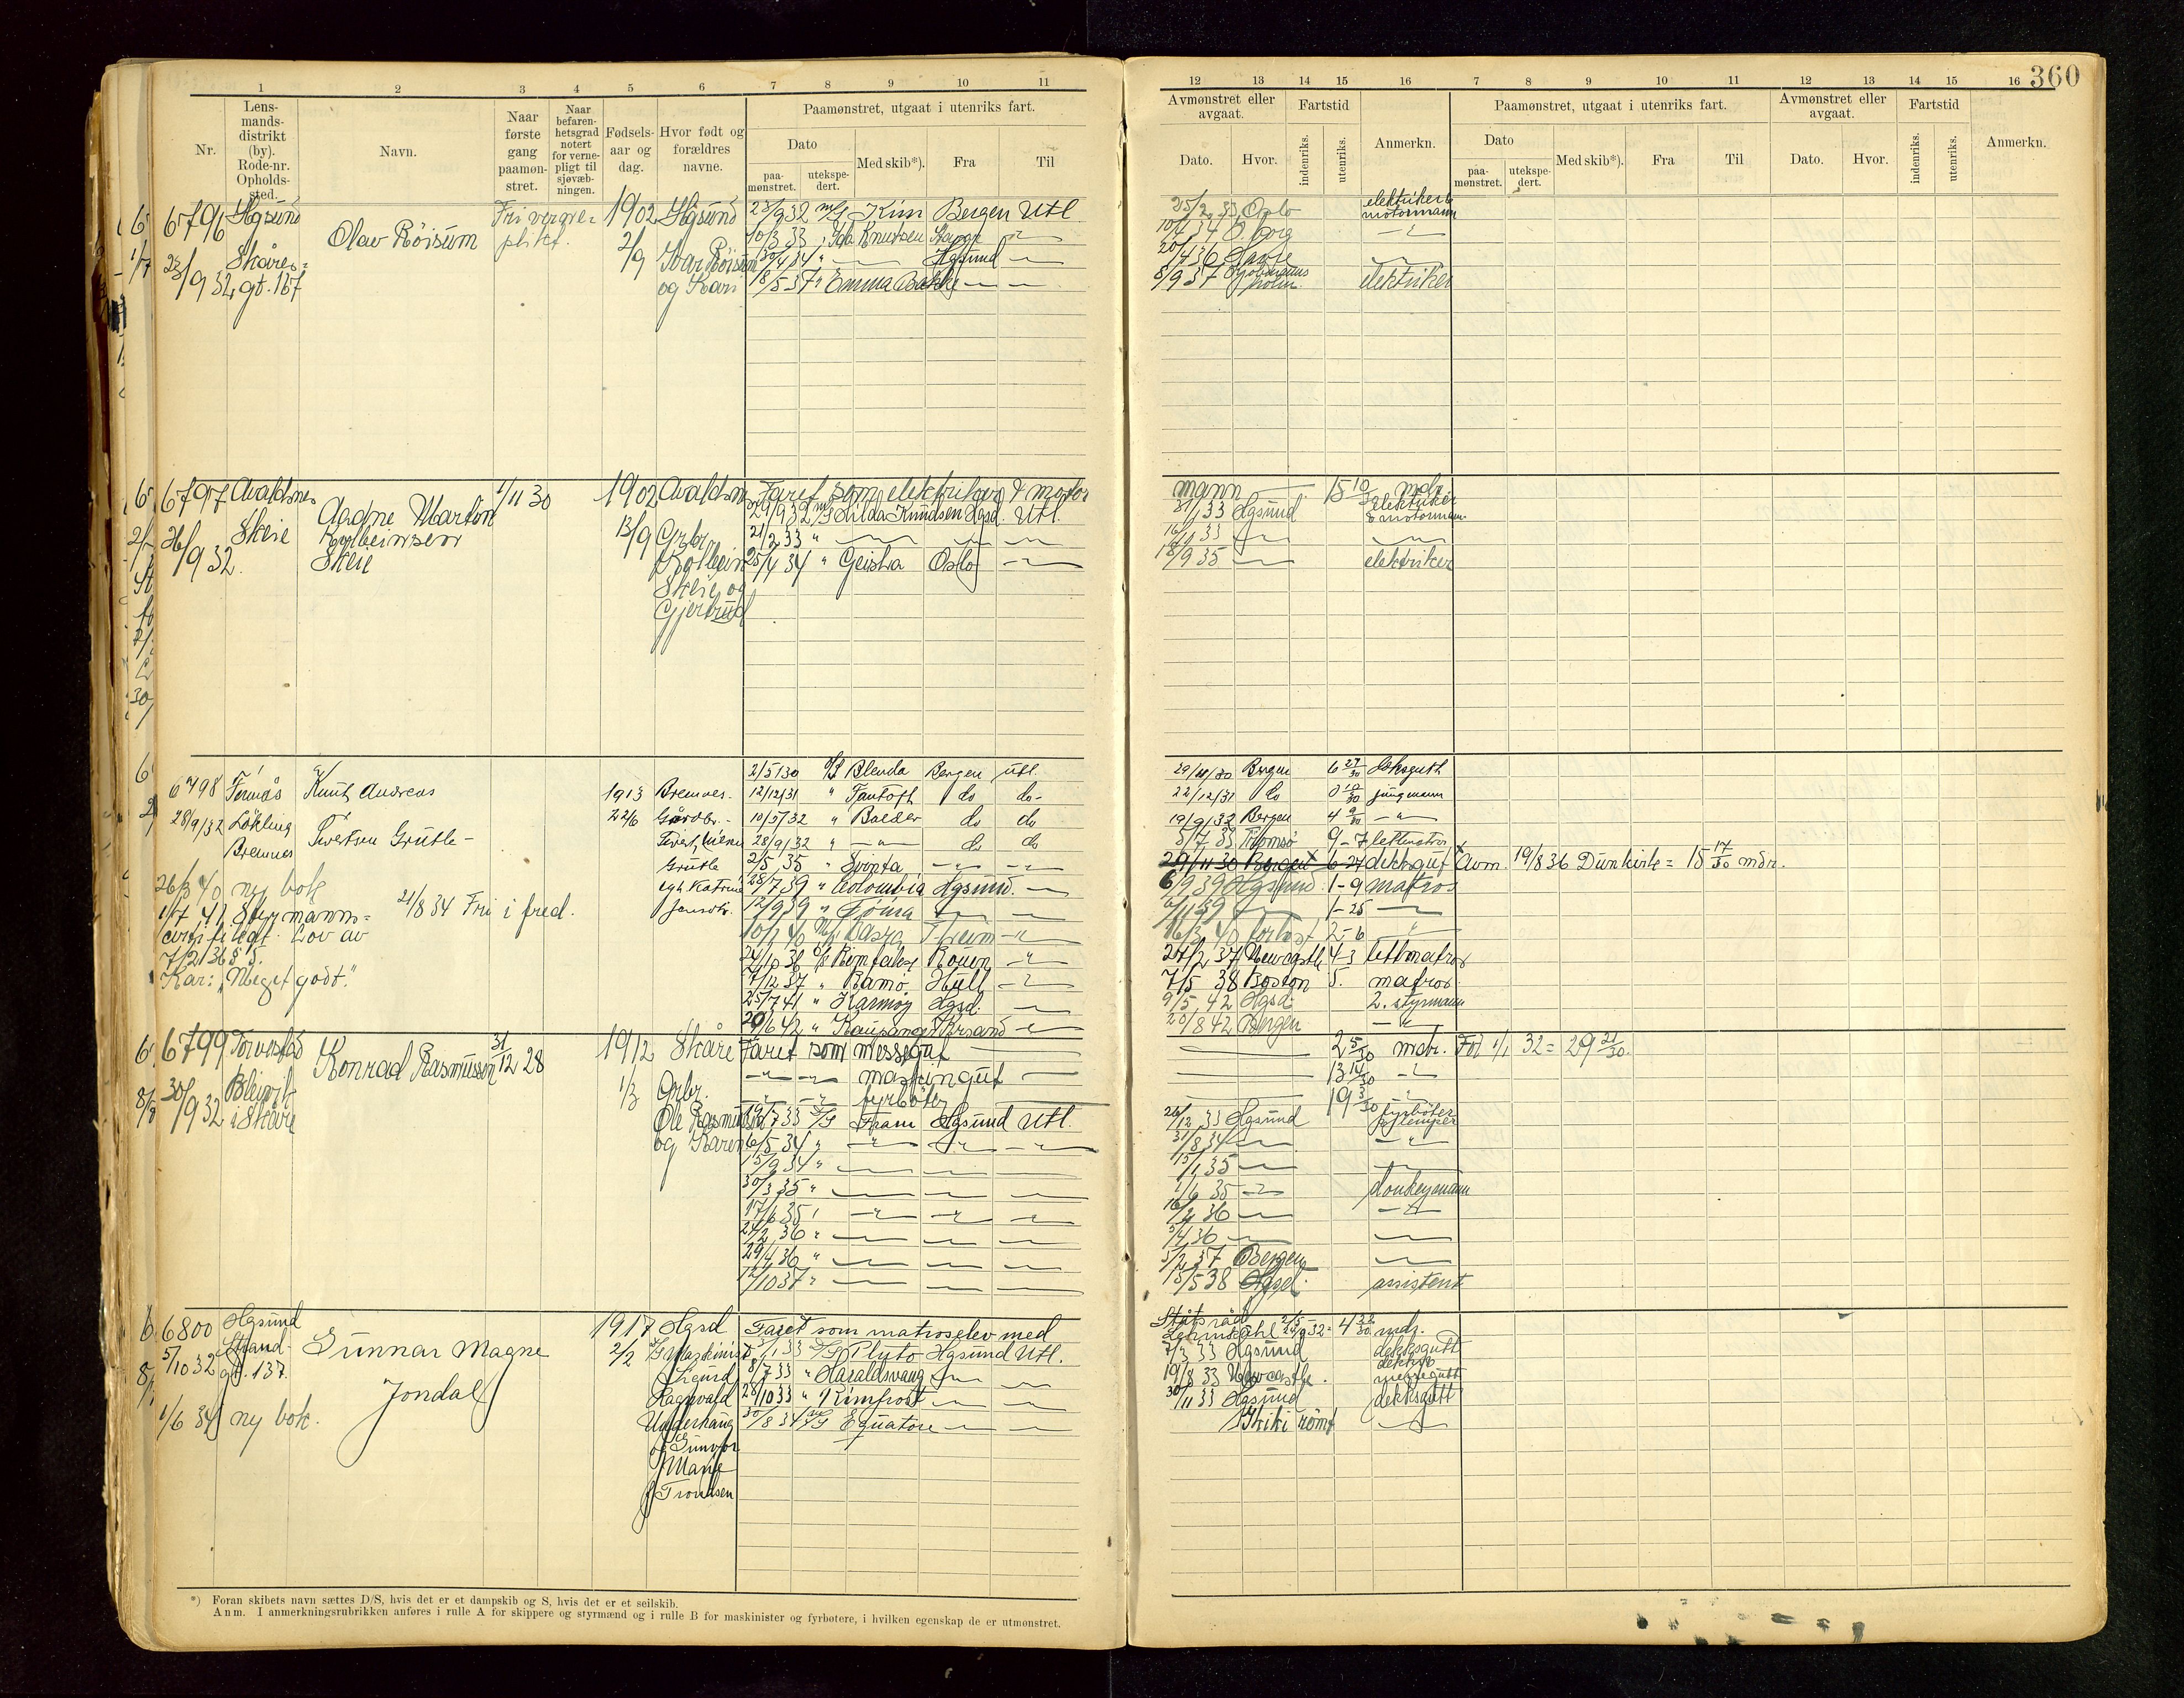 360
1 2 3 4 5 6 7 8 9 10 11
Nr.
Lens-
mands-
distrikt
(by).
Rode-nr.
Opholds-
sted.
Navn.
Naar
første
gang
paamøn-
stret.
Naar
befaren-
hetsgrad
notert
for verne-
pligt til
sjøvæb-
ningen.
Fødsels-
aar og
dag.
Hvor født og
forældres
navne.
Paamønstret, utgaat i utenriks fart.
Dato
paa-
mønstret.
utekspe-
dert.
Med skib*).
Fra
Til
12 13 14 15 16 7 8 9 10 11 12 13 14 15 16
Avmønstret eller
avgaat.
Dato.
Hvor.
Fartstid
indenriks.
utenriks.
Anmerkn.
Paamønstret, utgaat i utenriks fart.
Dato
paa-
mønstret.
utekspe-
dert.
Med skib*).
Fra
Til
Avmønstret eller
avgaat.
Dato.
Hvor.
Fartstid
indenriks.
utenriks.
Anmerkn.
6796 Hgsund
Skåre-
23/9 32 gt. 167
Olav Röisum
1902
2/9
Hgsund
Ivar Röisum
og Kari
23/9 32 m/S Kim Bergen Utl.
10/3 33 " Ida Knudsen
30/4 34 " Hgsund
18/5 37 " Emma Bakke
25/2 33 Oslo elektriker &
motormann
10/4 34
20/4 36
8/9 37 elektriker
6797 Avaldsnes
Skeie
26/9 32
Aadne Martin
Kolbeinsen
Skeie
1/11 30
1902
13/9
Avaldsn
Grbr.
Kolbein
Skeie og
Gjertrud
Faret som elektriker & motor
29/9 32 m/S Hilda Knudsen Hgsd. Utl.
21/2 33 "
25/4 34 " Geisha Oslo
mann 15 10/30 mdr.
31/1 33 Hgsund elektriker
& motormann
16/11 33
18/9 35 elektriker
6798
28/9/32 Løkling
Bremnes
Knut Andreas
Ivertsen Grutle
1913
22/6
Bremnes.
Gårdbr.
Grutle
2/5/30 D/S Blenda Bergen utl.
12/12/31 " Fantoft do do
10/5/32 " Balder do do
28/9/32 " do do
2/5 35 " Svinta
28/7 39 " Colombia Hgsund.
12/9 39 " Töma
24/10 36 D/S Rimfakse Rouen
7/12 37 " Ramö Hull
25/7 41 " Karmöy Hgsd.
20/6 42 " Kaupanger Krsand
29/11/30 Bergen 6 27/30 dæksguth
22/12/31 do 0 10/30 jungmann
19/9/32 Bergen 4 9/30
5/7 33 Tromsø 9-7 lettmatros
29/11 30 Bergen 6 27 dekksgut
Avm. 19/8 36 Dunkirk = 15 17/30 mdr.
6/9 39 Hgsund 1-9 matros
6/11 39 1-25
16/3 40 forlist 2-6
27/2 37 Newcastle 4-3 lettmatros
7/5 38 Boston 5. matros
9/5 42 Hgsd. 2. styrmann
20/8 42 Bergen
26/3 40 ny bok
1/7 41 Styrmanns-
certifikat. Lov av
7/2 36 § 5.
Kar: "Meget godt."
21/8 34 Fri i fred.
6799 Torvestad
30/9 32 Bleivik
i Skåre
Konrad Rasmussen
31/12 28
1912
1/3
Skåre
Grbr.
Ole Rasmussen
og Karen
Faret som messegut
maskingut
fyrböter
19/7 33 D/S Fram Hgsund Utl.
6/5 34 "
15/9 34 "
30/3 35 "
17/6 35 "
24/2 36 "
29/4 36 "
12/10 37 "
2 5/30 mdr. Før 1/1 32 = 29 21/30.
13 14/30
19 3/30
26/12 33 Hgsund fyrböter
& lemper
31/8 34
15/1 35
1/6 35 donkeymann
16/2 36
3/4 36
5/2 37 Bergen
15/5 38 Hgsd. assistent
6800 Hgsund
Strand-
5/10 32 gt. 137.
Gunnar Magne
Jondal
1/6 34 ny bok.
1917
2/2
Hgsd
Maskinist
Sigurd
Ragnvald
Underhaug
og Gunvor
Marie
f. Trondsen
Faret som matroselev med
1/1 33 D/S Pluto Hgsund Utl.
8/7 33 " Haraldsvang
28/10 33 " Rimfrost
30/8 34 m/S Equator
Statsråd
Lehmkuhl 2/5-24/9 32 = 4 22/30 mdr.
7/3 33 Hgsund dekksgutt
19/8 33 Newcastle. dekks &
messegutt
30/11 33 Hgsund dekksgutt
römt
*) Foran skibets navn sættes D/S, hvis det er et dampskib og S, hvis det er et seilskib.
Anm. I anmerkningsrubrikken anføres i rulle A for skippere og styrmænd og i rulle B for maskinister og fyrbøtere, i hvilken egenskap de er utmønstret.